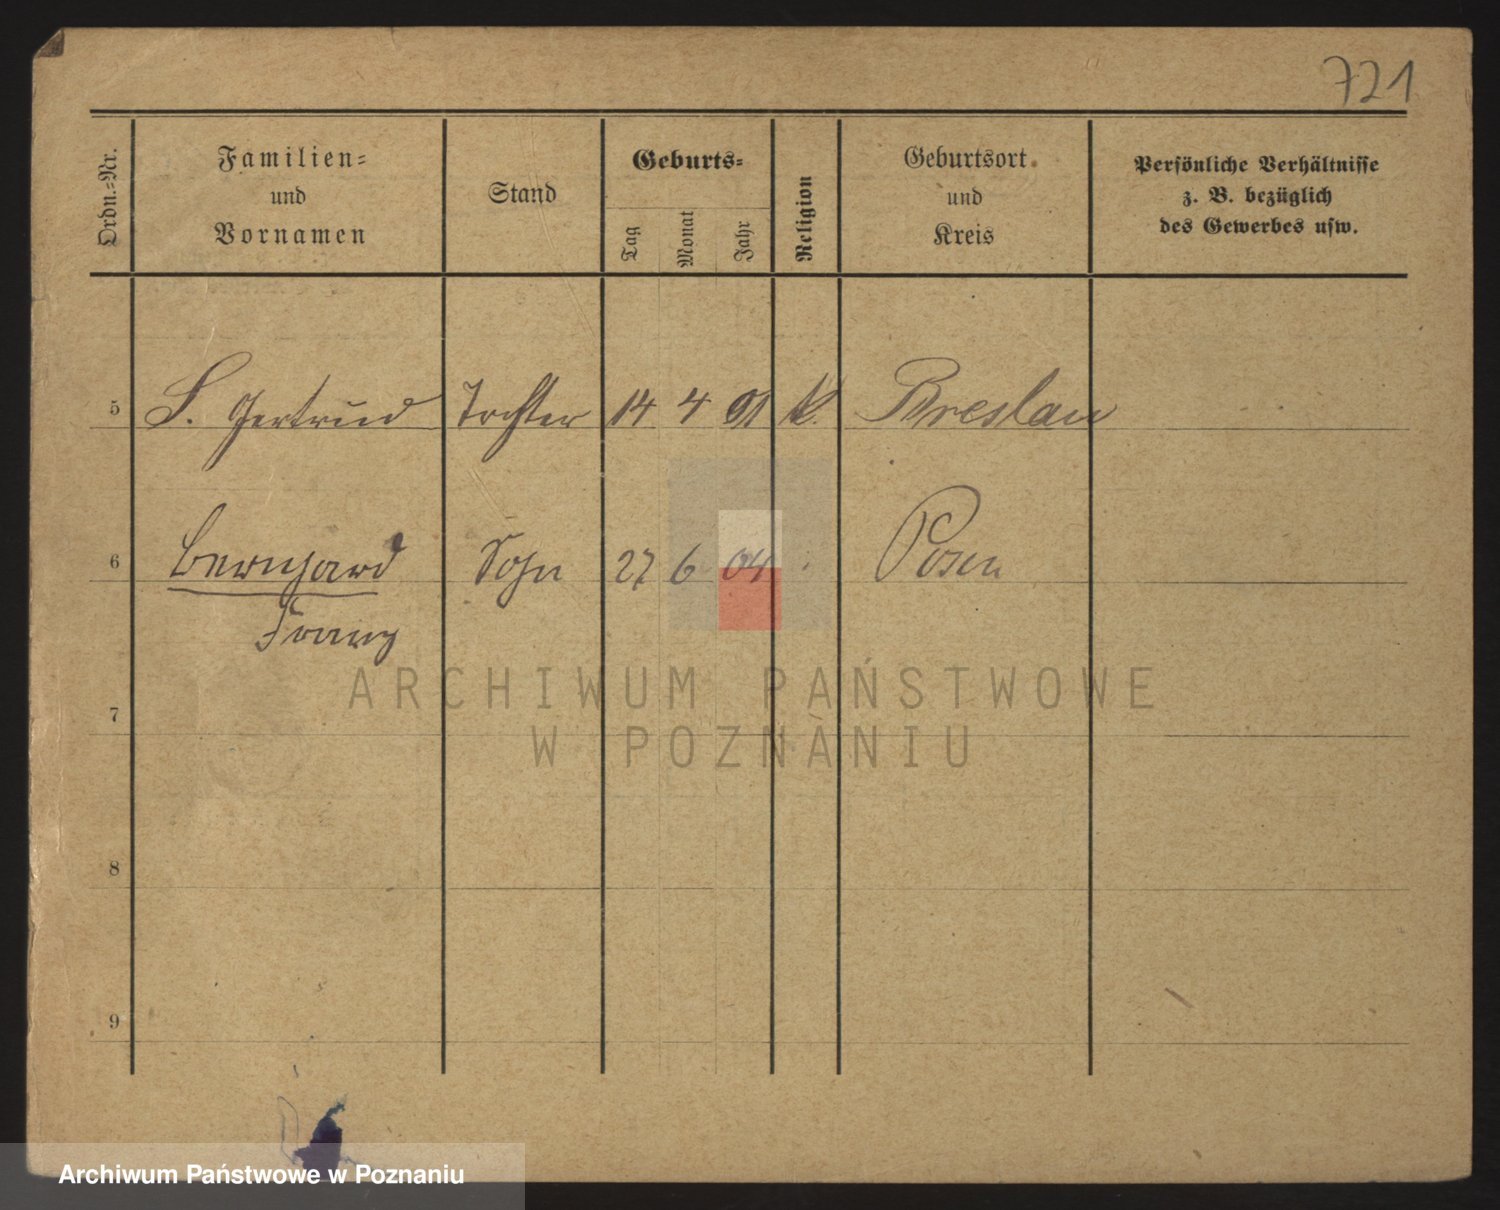 721
Ordn.-Nr.
Familien-
und
Vornamen
Stand
Geburts-
Tag
Monat
Jahr
Religion
Geburtsort
und
Kreis
Persönliche Verhältnisse
z. B. bezüglich
des Gewerbes usw.
5 S. Gertrud Tochter 14 4 01 k. Breslau
6 Bernhard Sohn 27 6 04 Posen
Franz
7
8
9
ARCHIWUM PAŃSTWOWE
W POZNANIU
Archiwum Państwowe w Poznaniu